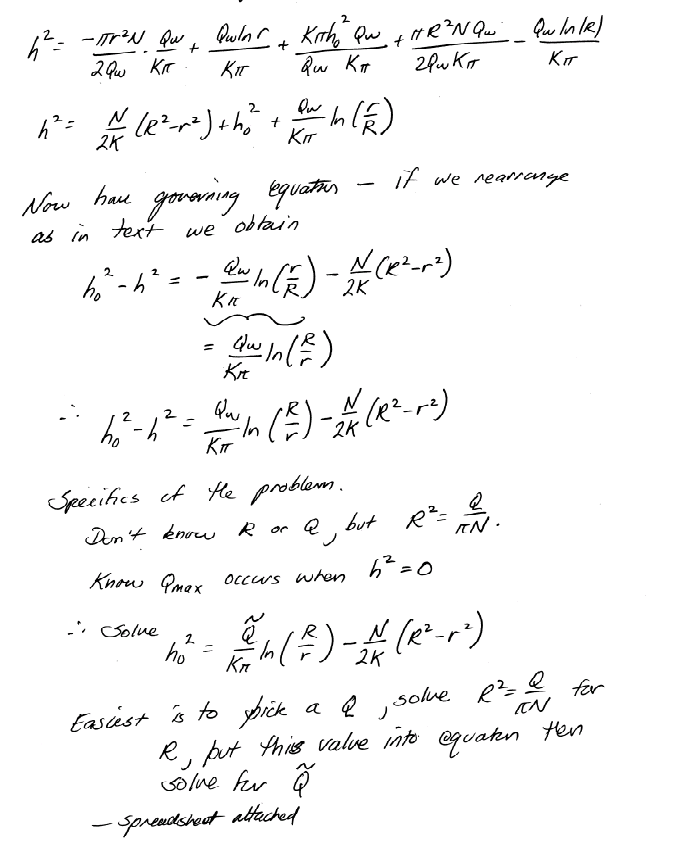 h² = -πr²N/2Qw · Qw/Kπ + Qw ln r/Kπ + Kπh₀²/Qw Qw/Kπ + πR²NQw/2QwKπ - Qw ln(R)/Kπ
h² = N/2K (R²-r²) + h₀² + Qw/Kπ ln(r/R)
Now have governing equation - if we rearrange
as in text we obtain
h₀² - h² = - Qw/Kπ ln(r/R) - N/2K (R²-r²)
= Qw/Kπ ln(R/r)
∴ h₀² - h² = Qw/Kπ ln(R/r) - N/2K (R²-r²)
Specifics of the problem.
Don't know R or Q, but R² = Q/πN.
Know Qmax occurs when h² = 0
∴ Solve h₀² = Q̃/Kπ ln(R/r) - N/2K (R²-r²)
Easiest is to pick a Q, solve R² = Q/πN for
R, put this value into equation then
solve for Q̃
- spreadsheet attached